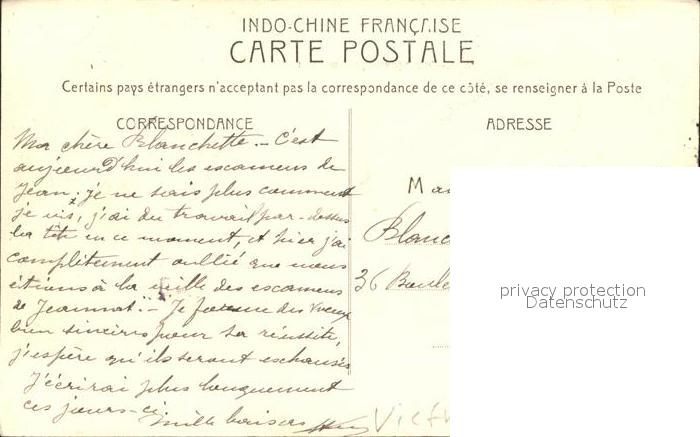 INDO-CHINE FRANÇAISE
CARTE POSTALE
Certains pays étrangers n'acceptant pas la correspondance de ce côté, se renseigner à la Poste
CORRESPONDANCE
ADRESSE
Ma chère Blanchette. — C'est
aujourd'hui les examens de
Jean; je ne sais plus comment
je vis, j'ai du travail par-dessus
la tête en ce moment, et hier j'ai
complètement oublié que nous
étions à la veille des examens
de Jeannot. — Je forme des vœux
bien sincères pour sa réussite,
j'espère qu'ils seront exhaussés
J'écrirai plus longuement
ces jours-ci
mille baisers
Ma
Blanc
36 Boule
privacy protection
Datenschutz